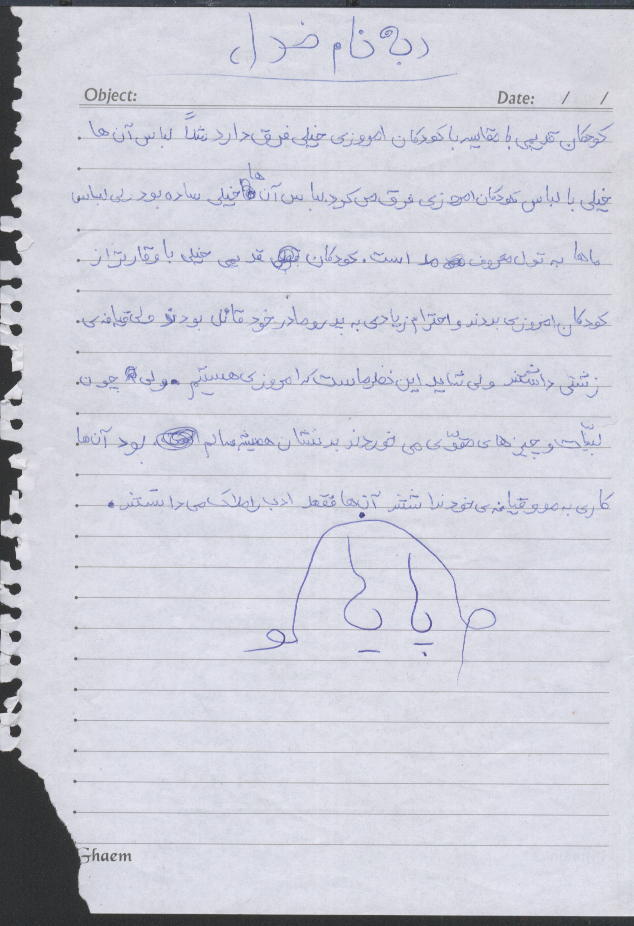 به نام خدا
Object: Date: / /
کودکان قدیمی با مقایسه با کودکان امروزی خیلی فرق دارد مثلاً لباس آن ها
خیلی با لباس کودکان امروزی فرق می کرد. لباس آن ها خیلی ساده بود ولی لباس
ماها به قول معروف مد است. کودکان قدیمی خیلی با وقارتر از
کودکان امروزی بودند و احترام زیادی به پدر و مادر خود قائل بودند ولی قیافه ی
زشتی داشتند ولی شاید این نظر ماست که امروزی هستیم. ولی چون
لبنیّات و چیزهای مقوّی می خوردند بدنشان همیشه سالم بود آن ها
کاری به مو و قیافه ی خود نداشتند آن ها فقط ادب را ملاک می دانستند.
پایا
Ghaem